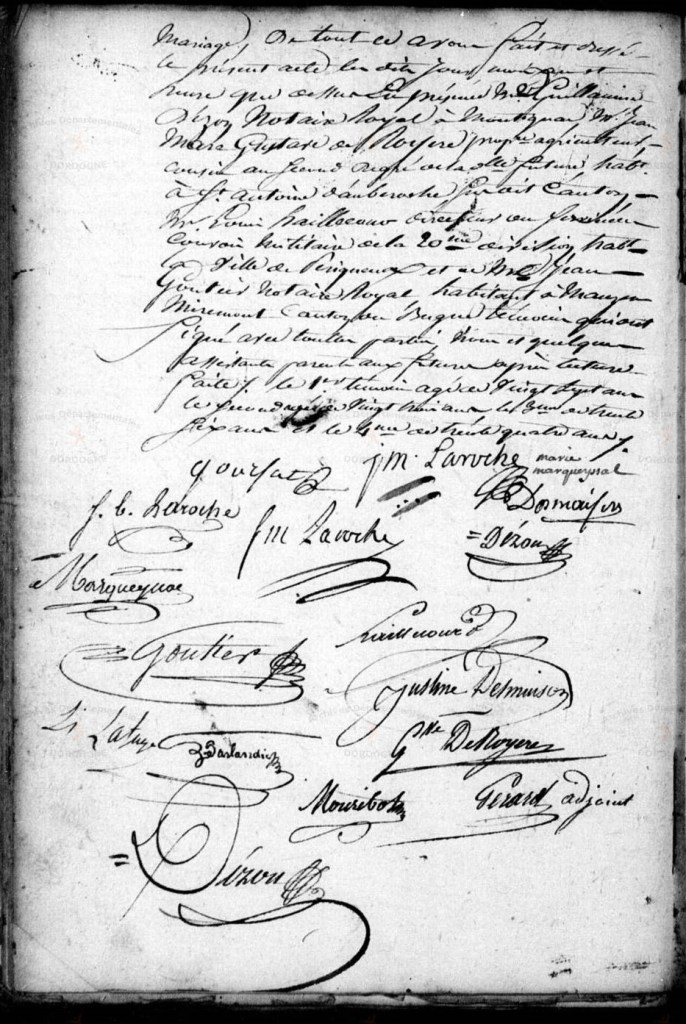 Mariage, De tout ce avons fait et dressé
le présent acte les dits jour, mois an et
heure que dessus En présence de Mr Guillaume
Dézon Notaire Royal à Montignac, Mr Jean
Marie Gustave de Royere propre agriculteur
cousin au second degré de la dlle future habt
à St antoine d'auberoche susdit Canton
Mr Louis Cailleconn directeur du
Convoi Militaire de la 20me division, habt
la Ville de Périgueux et de Mr Jean
Goutier Notaire Royal habitant à Mauzen
Miremont Canton du Bugue témoins qui ont
signé avec toutes parties, nous et quelques
assistants parents aux futurs après lecture
faite /. le 1er témoin agé de Vingt sept ans
le second agé de Vingt trois ans le 3me de trente
six ans et le 4me de trente quatre ans /.
gourfat jm. Laroche marie
marqueyssal
j. b. Laroche jm Laroche Desmaison
= Dézon
Marqueyssac
= Goutier
Justine Desmaison
Lafaye Gve DeRoyere
Mouribot Gérard adjoint
= Dézon